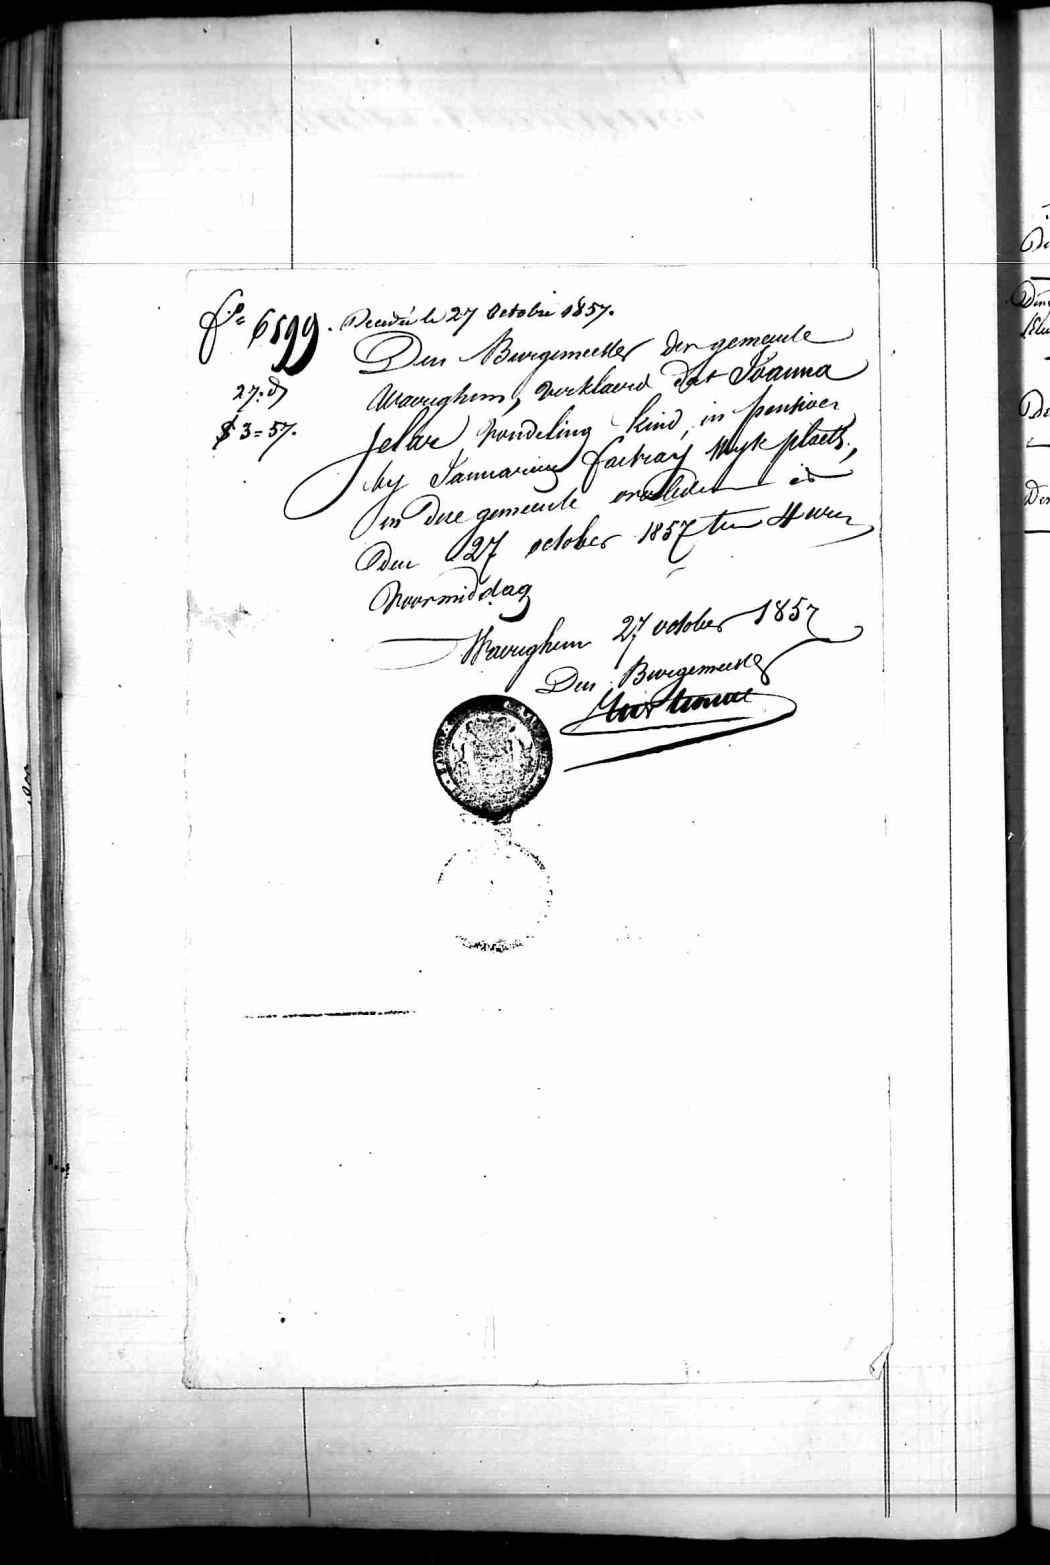 f° 6599. Decedée le 27 Octobre 1857.
27. d
3 = 57.
Den Burgemeester der gemeente
Waereghem, verklaerd dat Joanna
Jelar vondeling kind, in pensioen
by Januarius
in deze gemeente overleden is
den 27 october 1857 ten 4 uren
voormiddag
Waereghem 27 october 1857
Den Burgemeester
De
De